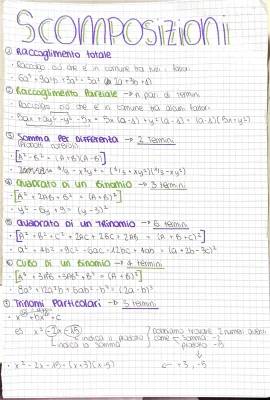 SCOMPOSIZIONI
① Raccoglimento totale
· Raccolgo ciò che è in comune tra tutti i fattori
② Raccoglimento Parziale → n pari di termini
· Raccolgo ciò che è in comune tra alcuni fattori
③ Somma per differenza → 2 termini
(Prodotti notevoli)
· A² - B² = (A+B)(A-B)
④ Quadrato di un Binomio → 3 termini
· A² + 2AB + B² = (A+B)²
· y² - 6y + 9 = (y-3)²
⑤ Quadrato di un Trinomio → 6 termini
· A² + B² + C² + 2AC + 2BC + 2AB = (A+B+C)²
· a² + 4b² + 9c² - 6ac - 12bc + 4ab = (a+2b-3c)²
⑥ Cubo di un Binomio → 4 termini
· A³ + 3A²B + 3AB² + B³ = (A+B)³
· 8a³ - 12a²b + 6ab² - b³ = (2a-b)³
⑦ Trinomi Particolari → 3 termini
es x² - 2x - 15
indica il prodotto
indica la somma
dobbiamo trovare 2 numeri aventi
come somma -2
prodotto -15
· x² - 2x - 15 = (x+3)(x-5)
← +3, -5